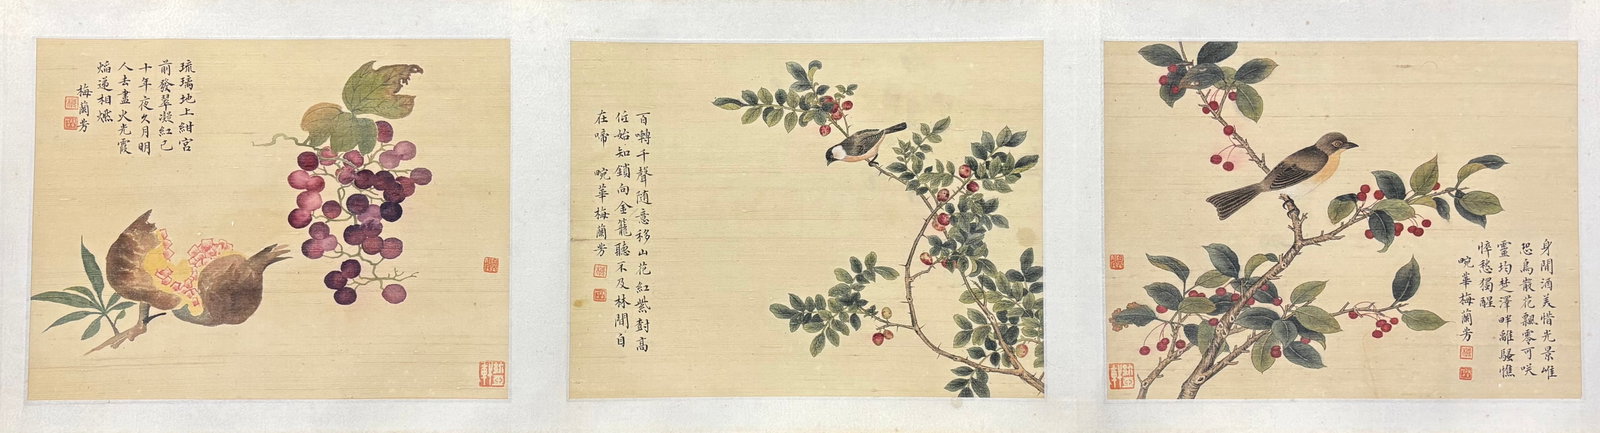 身閒酒美惜光景唯
恐鳥散花飄零可咲
靈均楚澤畔離騷憔
悴愁獨醒
畹華梅蘭芳
百囀千聲隨意移山花紅紫樹高
低始知鎖向金籠聽不及林間自
在啼
畹華梅蘭芳
琉璃地上紺宮
前發翠凝紅已
十年夜久月明
人去盡火光霞
焰遞相燃
梅蘭芳